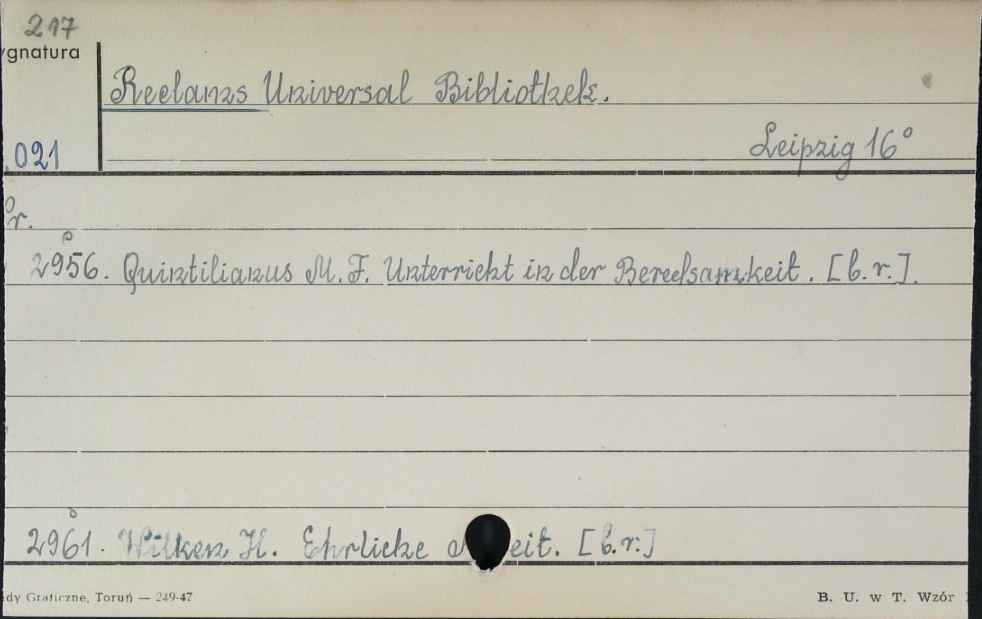 217
ygnatura
Reclams Universal Bibliothek.
021
Leipzig 16°
Pr.
2956. Quintilianus M. F. Unterricht in der Beredsamkeit. [b. r.].
2961. Wilken H. Ehrliche eit. [b. r.]
dy Graficzne, Toruń — 249-47
B. U. w T. Wzór